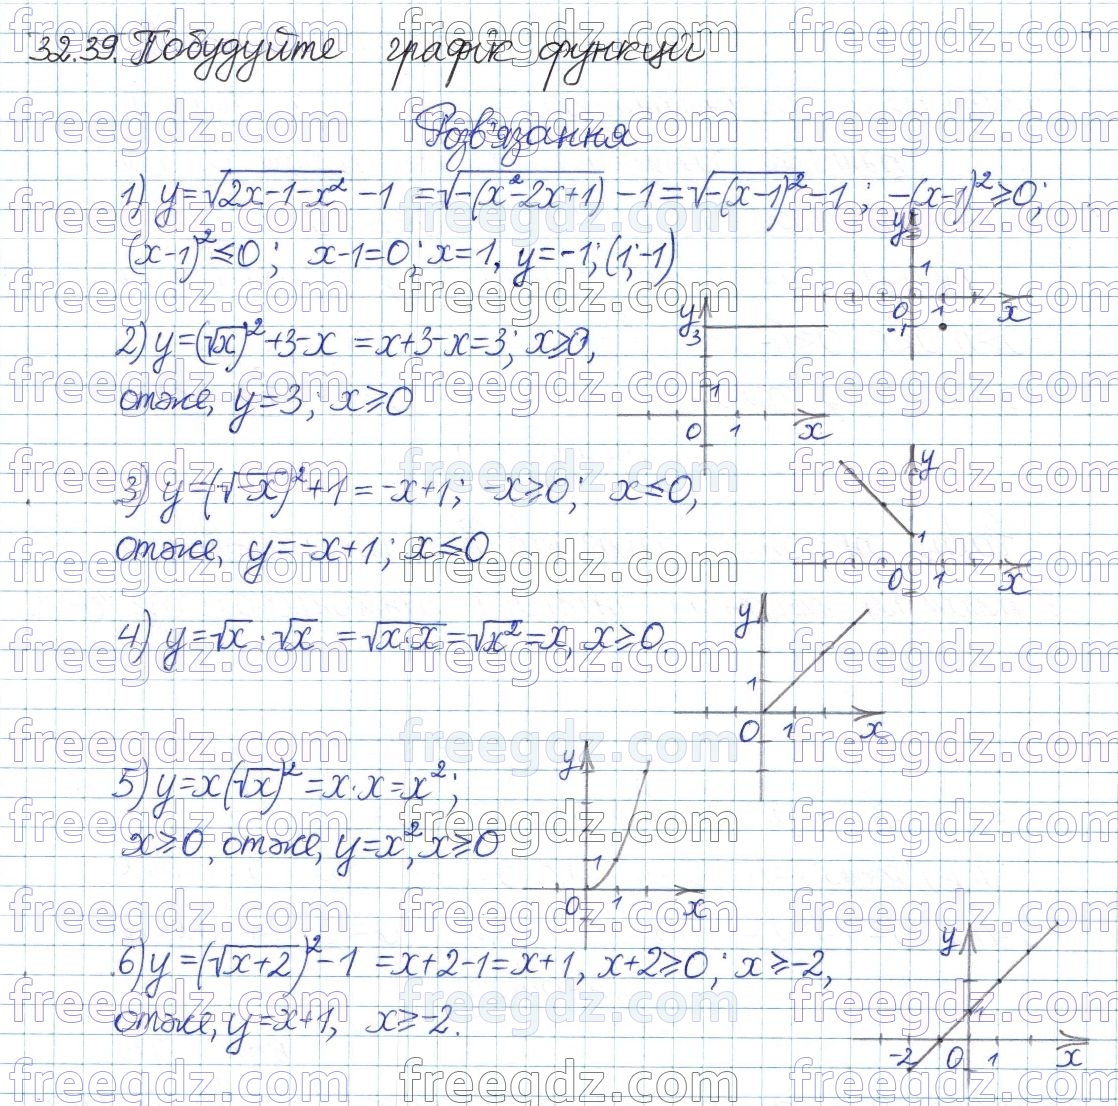 32.39. Побудуйте графік функції
Розв'язання
1) y=√(2x-1-x²) -1 =√(-(x²-2x+1)) -1=√(-(x-1)²)-1; -(x-1)²≥0;
(x-1)²≤0; x-1=0; x=1, y=-1; (1;-1)
y 1 0 1 -1 x
2) y=(√x)²+3-x =x+3-x=3; x≥0,
отже, y=3; x≥0
y 3 1 0 1 x
3) y=(√-x)²+1=-x+1; -x≥0; x≤0,
отже, y=-x+1; x≤0
y 1 0 1 x
4) y=√x·√x =√(x·x)=√x²=x, x≥0.
y 1 0 1 x
5) y=x(√x)²=x·x=x²;
x≥0, отже, y=x², x≥0
y 1 0 1 x
6) y=(√(x+2))²-1 =x+2-1=x+1, x+2≥0; x≥-2,
отже, y=x+1, x≥-2.
y 1 -2 0 1 x
freegdz.com